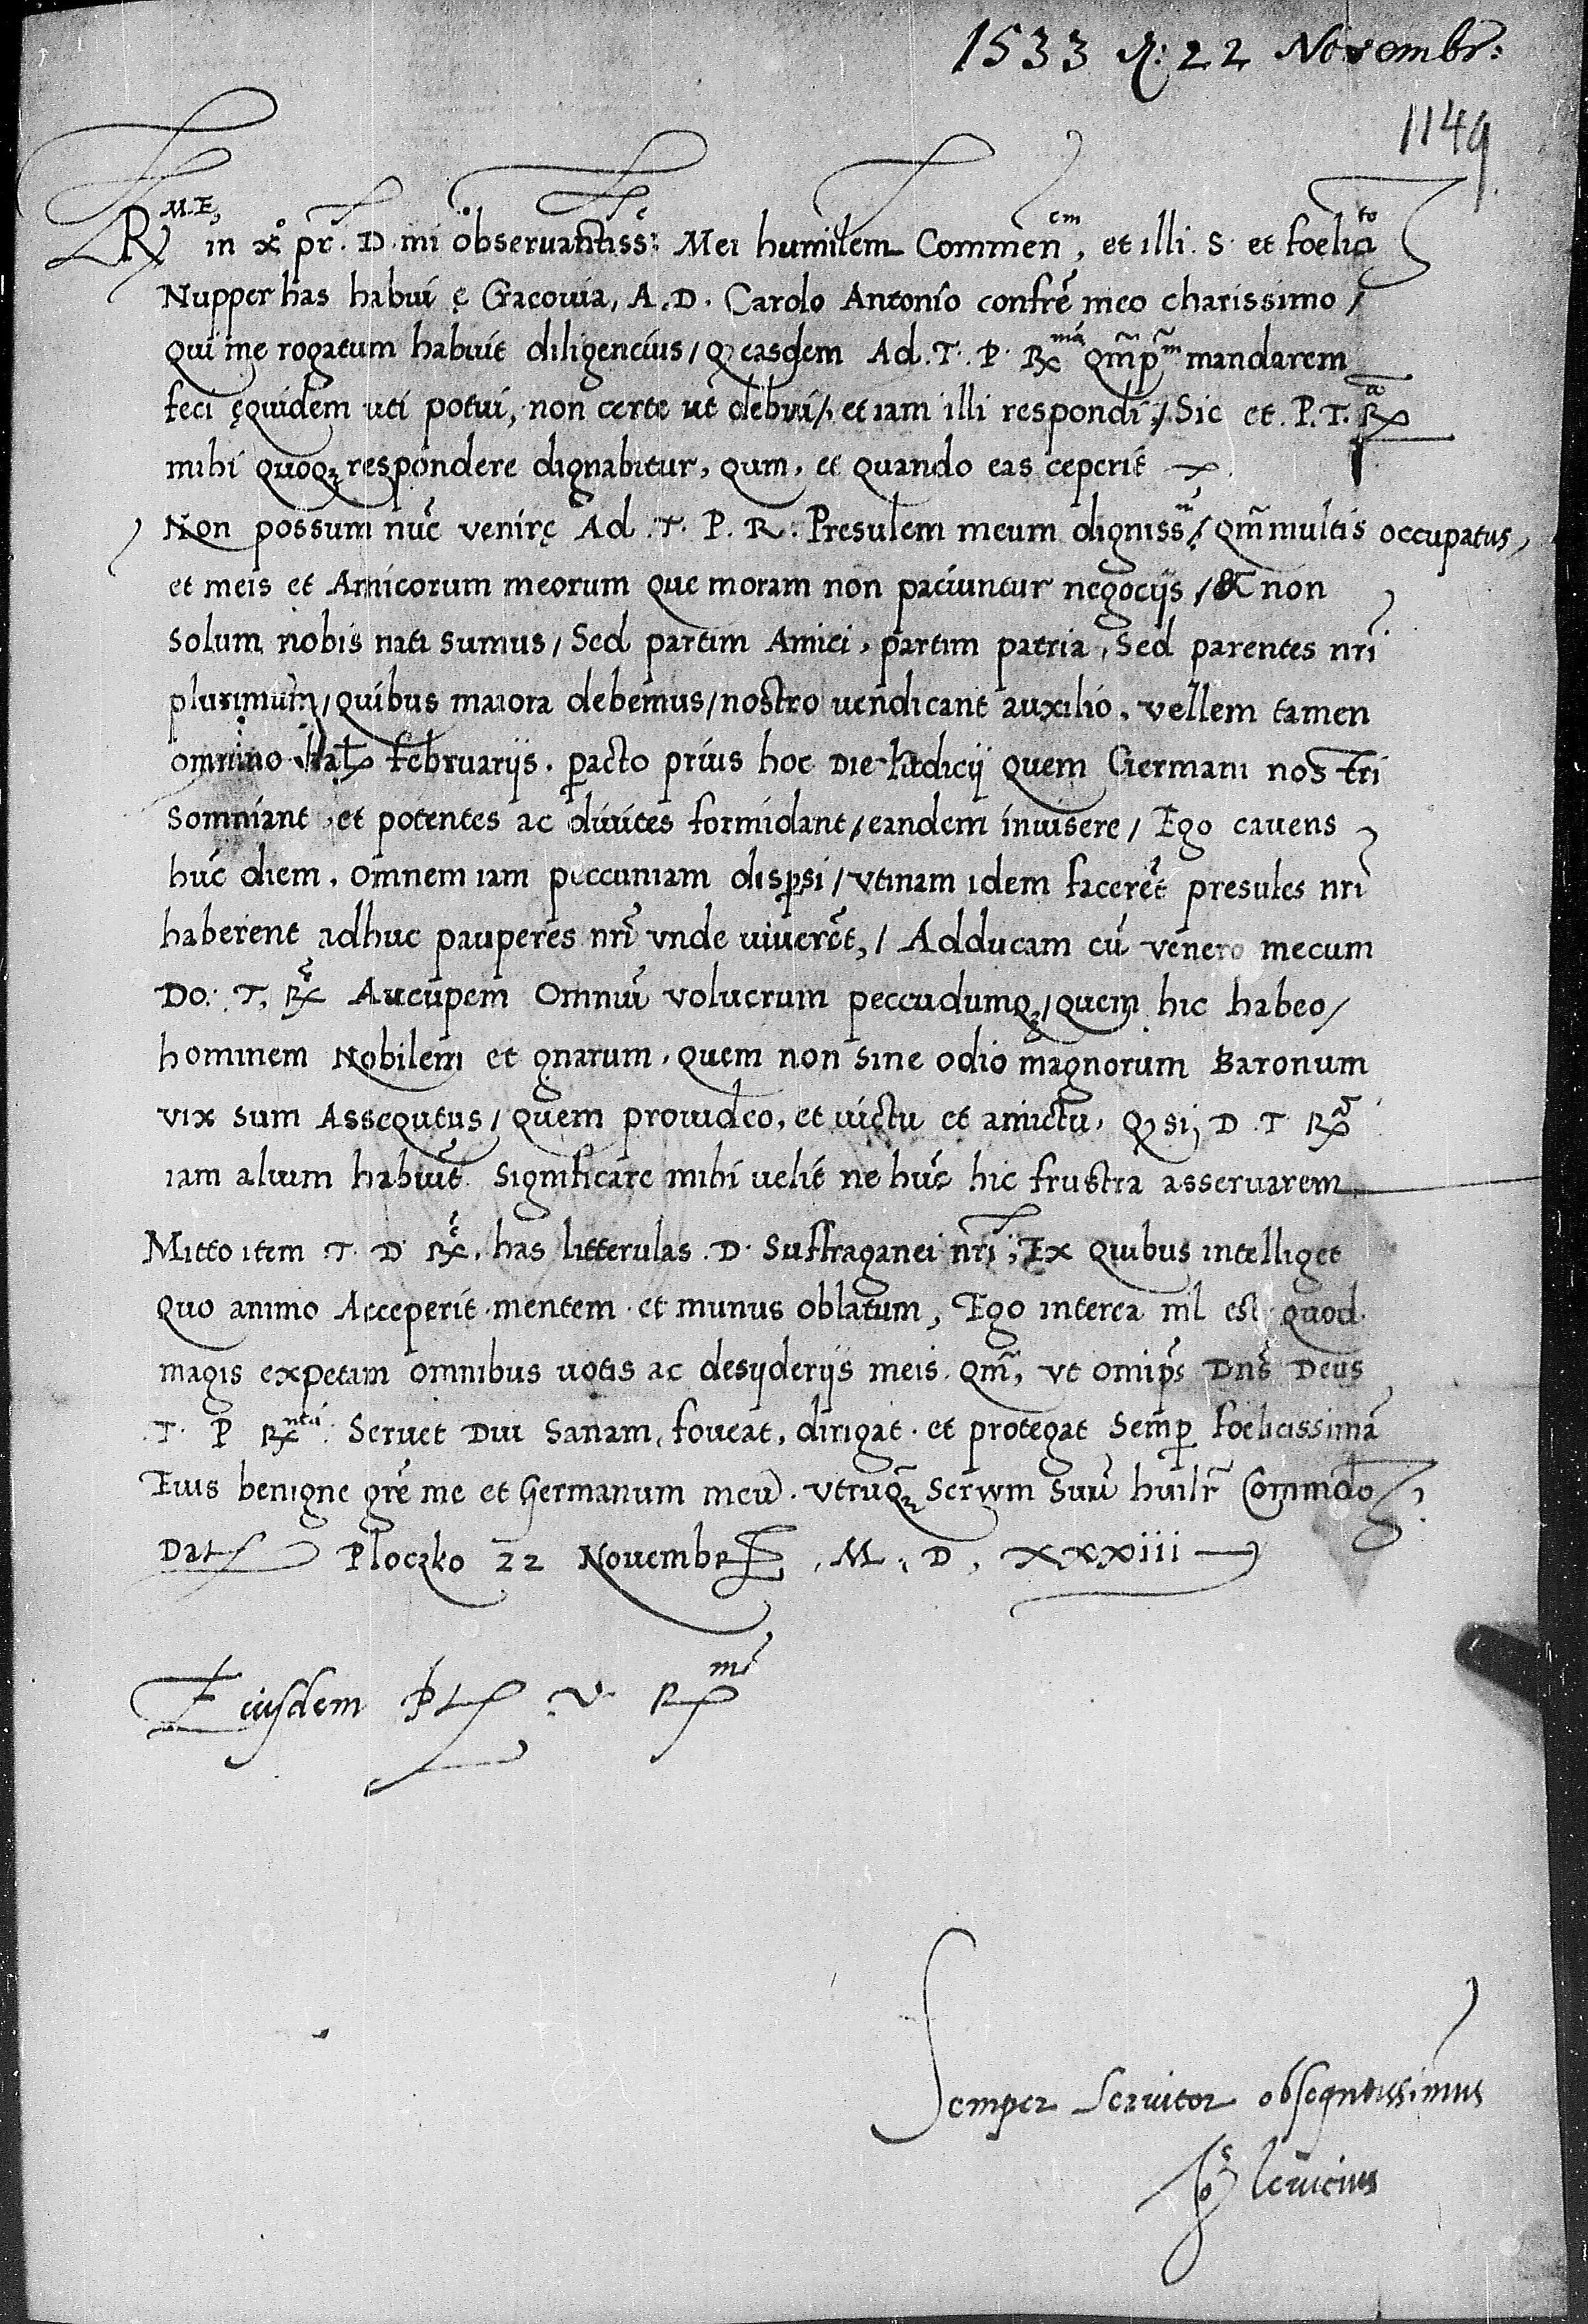 1533 d: 22 Novembr:
1149
R M.E, in xº pr̃. D. mi observantissẽ: Mei humilem Commenem̃, et illi. S. et foelicito
Nupper has habui ę Cracovia, A. D. Carolo Antonio confrẽ meo charissimo /
Qui me rogatum habuit diligencius / Q easdem Ad. T. P. Rmá qm̃pm̃ mandarem
feci ęquidem uti potui, non certe ut debui /. et iam illi respondi ./ Sic et. P. T. Rã
mihi quoqꝫ respondere dignabitur, qum, et quando eas ceperit
Non possum nũc venirę Ad . T. P. R. Presulem meum dignissm̃ / Qm̃ multis occupatus,
et meis et Amicorum meorum que moram non paciuntur negocijs / & non
solum nobis nati sumus / Sed partim Amici, partim patria, Sed parentes nr̃i
plurimum / quibus maiora debemus / nostro uendicant auxilio. vellem tamen
omnino Kal februarijs. ꝑacto prius hoc die Iudicij quem Germani nostri
somniant, et potentes ac diuites formidant / eandem inuisere / Ego cavens
hũc diem, omnem iam peccuniam disꝑsi / Vtinam idem facerẽt presules nr̃i
haberent adhuc pauperes nr̃i vnde uiuerẽt, / Adducam cũ venero mecum
Do: T, Rẽ Aucupem Omniũ volucrum peccudumqꝫ / quem hic habeo /
hominem Nobilem et gnarum. quem non sine odio magnorum Baronum
vix sum Assequtus / quem prouideo, et uictu et amictu, Q si, D. T Rã
iam alium habuit. Significare mihi uelit ne hũc hic frustra asseruarem
Mitto item T. D Rẽ. has litterulas. D. Suffraganei nr̃i; Ex quibus intelliget
quo animo Acceperit. mentem. et munus oblatum, Ego interea nil est quod.
magis expetam omnibus uotis ac desyderijs meis. qm̃, vt omip̃s Dns̃ Deus
T. P Rmã. Seruet Diu Sanam, foveat, dirigat. et protegat Semꝑ foelicissimã
Eius benigne gr̃e me et Germanum meũ. vtrũqꝫ Servvm Suũ huilr̃ Commdo
Dat Ploczko 22 Novembr , M. D, xxxiii
Eiusdem Pt V. Rmẽ
Semper Servitor obseqntissimus
Jos leuicius